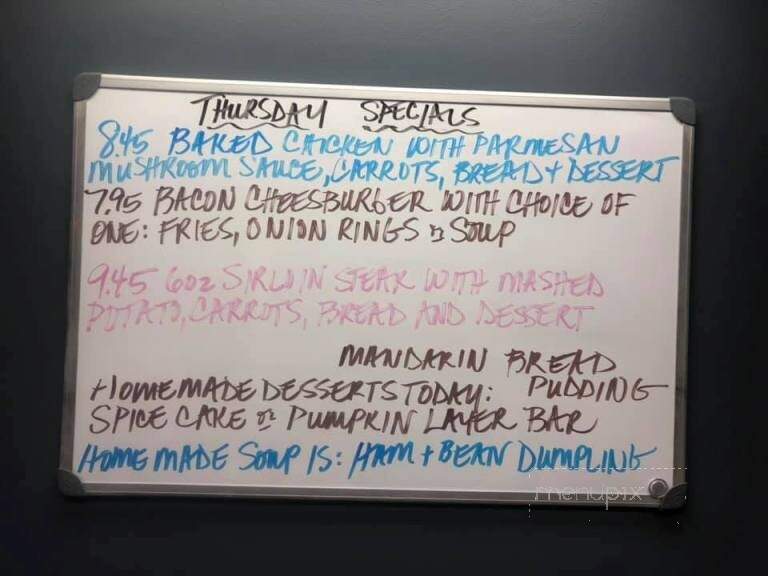 THURSDAY SPECIALS
8.45 BAKED CHICKEN WITH PARMESAN
MUSHROOM SAUCE, CARROTS, BREAD + DESSERT
7.95 BACON CHEESBURGER WITH CHOICE OF
ONE: FRIES, ONION RINGS or SOUP
9.45 6oz SIRLOIN STEAK WITH MASHED
POTATO, CARROTS, BREAD AND DESSERT
MANDARIN BREAD
HOMEMADE DESSERTS TODAY: PUDDING
SPICE CAKE or PUMPKIN LAYER BAR
HOME MADE SOUP IS: HAM + BEAN DUMPLING
menupix